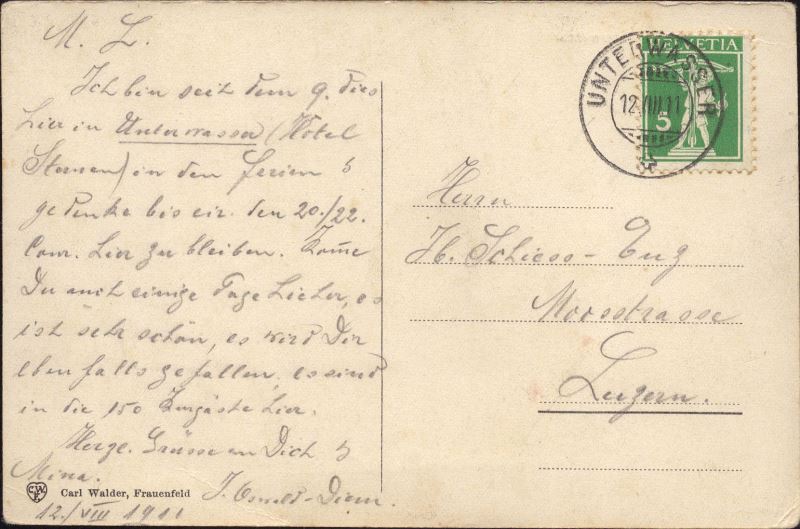 M. L.
Ich bin seit dem 9. dies
hier in Unterwasser (Hotel
Sternen) in den Ferien &
gedenke bis cir. den 20./22.
cour. hier zu bleiben. Kom̄e
Du auch einige Tage hieher, es
ist sehr schön, es wird Dir
ebenfalls gefallen. es sind
in die 150 Kurgäste hier.
Herzl. Grüsse an Dich &
Mina.
J. Oswald-Diem.
12./VIII 1911
Carl Walder, Frauenfeld
CWF
HELVETIA
5
UNTERWASSER
12.VIII.11
Herrn
H. Schiess-Enz
Moosstrasse
Luzern.